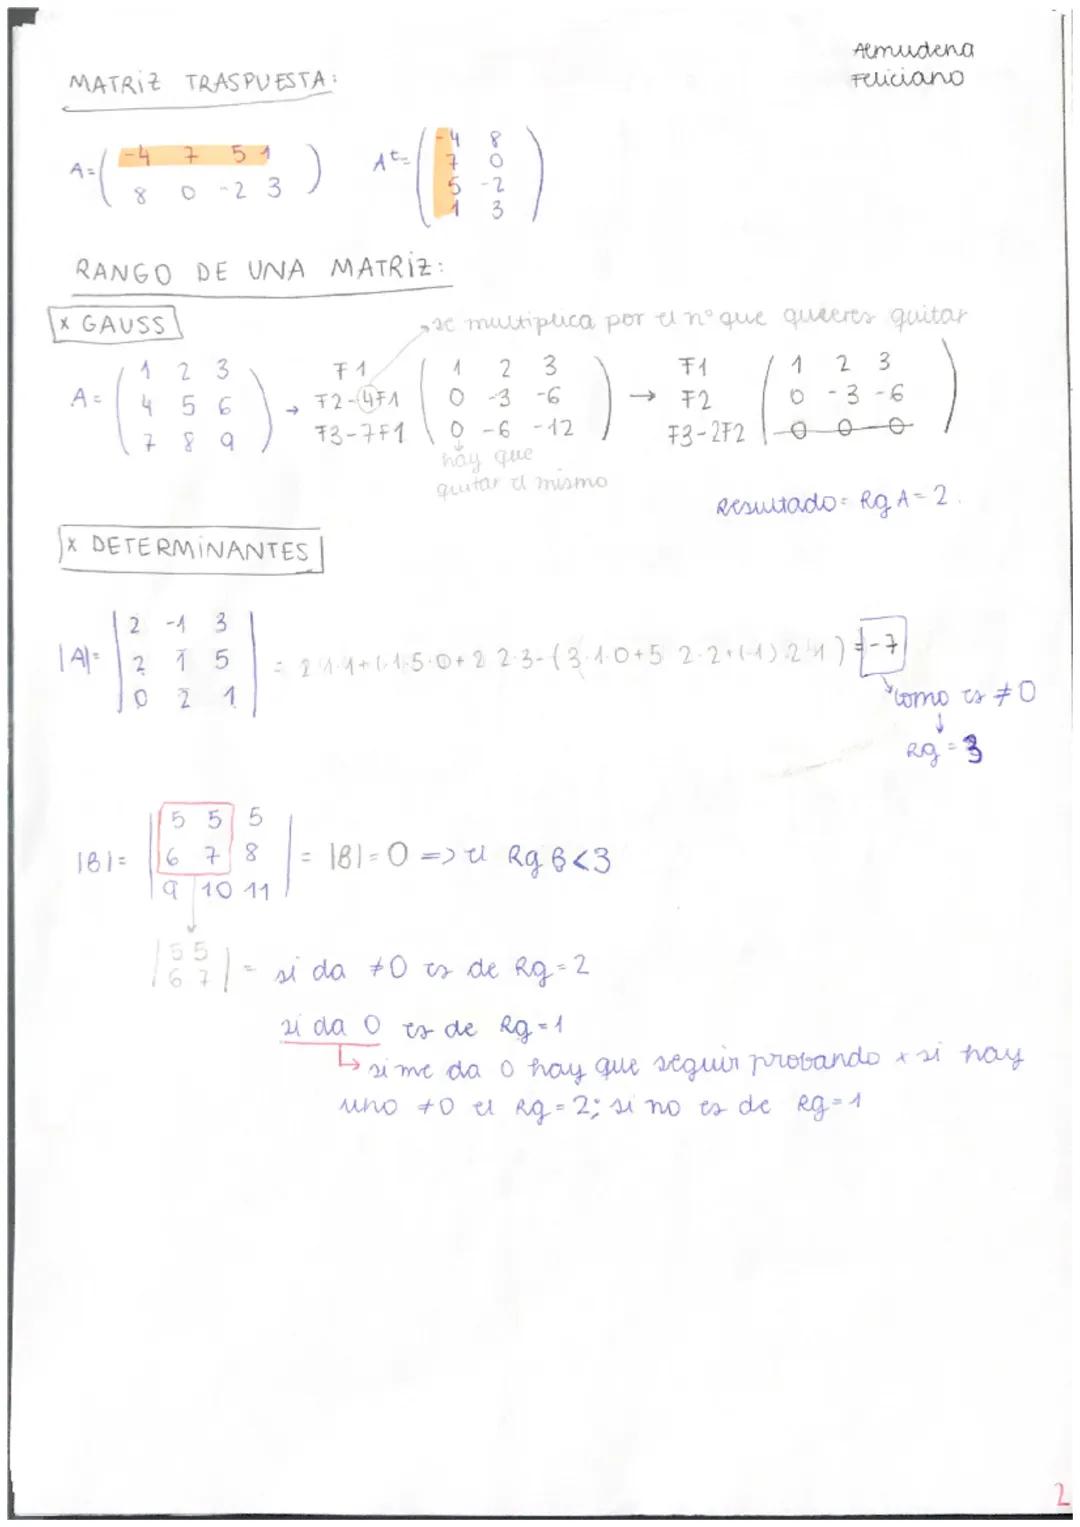 Almudena
Feliciano
MATRIZ TRASPUESTA:
A= ( -4 7 5 1
8 0 -2 3 )
A^t= ( -4 8
7 0
5 -2
1 3 )
RANGO DE UNA MATRIZ:
x GAUSS
se multiplica por el nº que quieres quitar
A= ( 1 2 3
4 5 6
7 8 9 )
→ F1
F2-4F1
F3-7F1
( 1 2 3
0 -3 -6
0 -6 -12 )
→ F1
F2
F3-2F2
( 1 2 3
0 -3 -6
0 0 0 )
hay que
quitar el mismo
Resultado= Rg A=2.
x DETERMINANTES
|A|= | 2 -1 3
2 1 5
0 2 1 |
= 2·1·1+(-1·5·0+2 2·3-(3·1·0+5 2·2+(-1)·2·1) = -7
como es ≠0
↓
Rg = 3
|B|= | 5 5 5
6 7 8
9 10 11 |
= |B|=0 => el Rg B<3
| 5 5
6 7 | = si da ≠0 es de Rg=2
si da 0 es de Rg=1
↳ si me da 0 hay que seguir probando x si hay
uno ≠0 el Rg=2; si no es de Rg=1
2